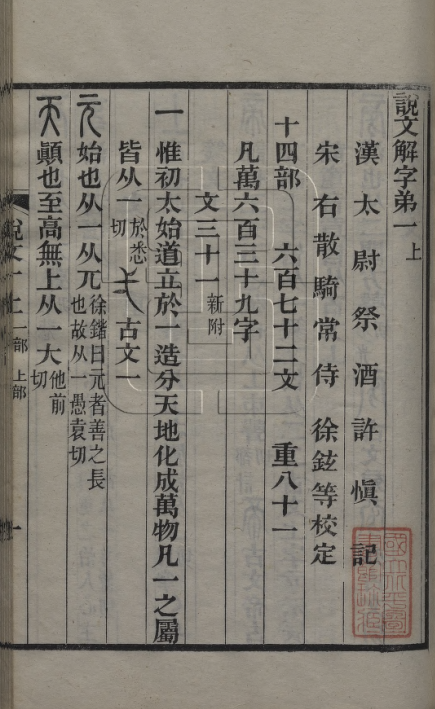 說文解字弟一上
漢太尉祭酒許慎記
宋右散騎常侍徐鉉等校定
十四部 六百七十二文 重八十一
凡萬六百三十九字
文三十一新附
一 惟初太始道立於一造分天地化成萬物凡一之屬
皆从一於悉切 古文一
元 始也从一从兀徐鍇曰元者善之長也故从一愚袁切
天 顚也至高無上从一大他前切
說文一上 一部 上部 一